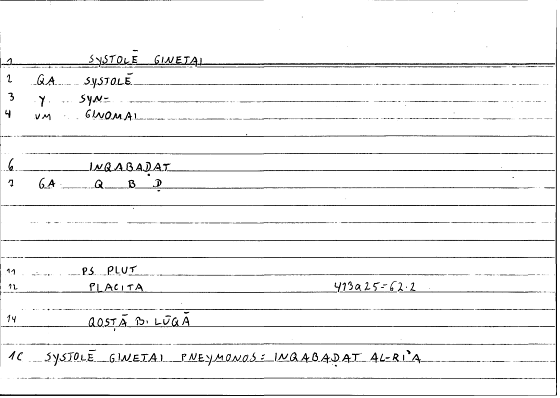 1 SYSTOLĒ GINETAI
2 GA SYSTOLĒ
3 Y SYN-
4 VM GINOMAI
6 INQABAḌAT
7 GA Q B Ḍ
11 PS. PLUT
12 PLACITA 413a25=62.2
14 QOSṬĀ B. LŪQĀ
1C SYSTOLĒ GINETAI PNEYMONOS = INQABAḌAT AL-RI'A